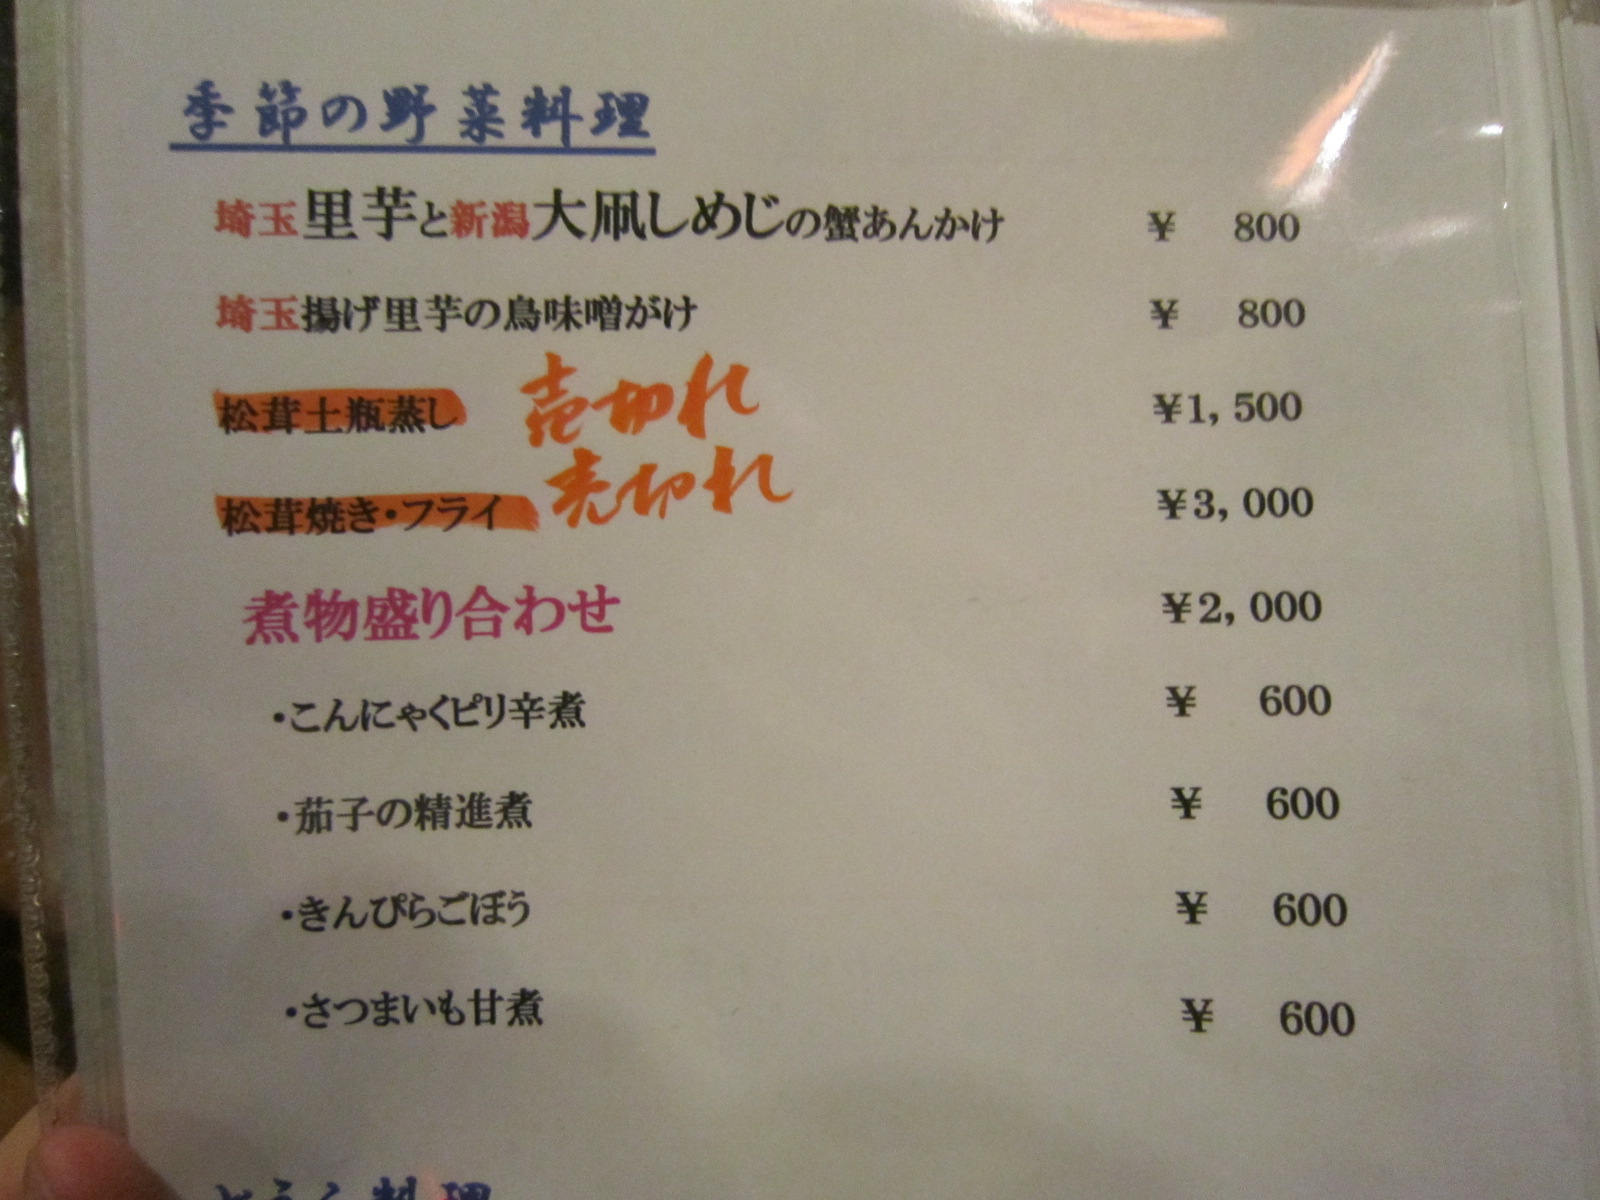 季節の野菜料理
埼玉里芋と新潟大凧しめじの蟹あんかけ ¥ 800
埼玉揚げ里芋の鳥味噌がけ ¥ 800
松茸土瓶蒸し 売切れ ¥1,500
松茸焼き・フライ 売切れ ¥3,000
煮物盛り合わせ ¥2,000
・こんにゃくピリ辛煮 ¥ 600
・茄子の精進煮 ¥ 600
・きんぴらごぼう ¥ 600
・さつまいも甘煮 ¥ 600